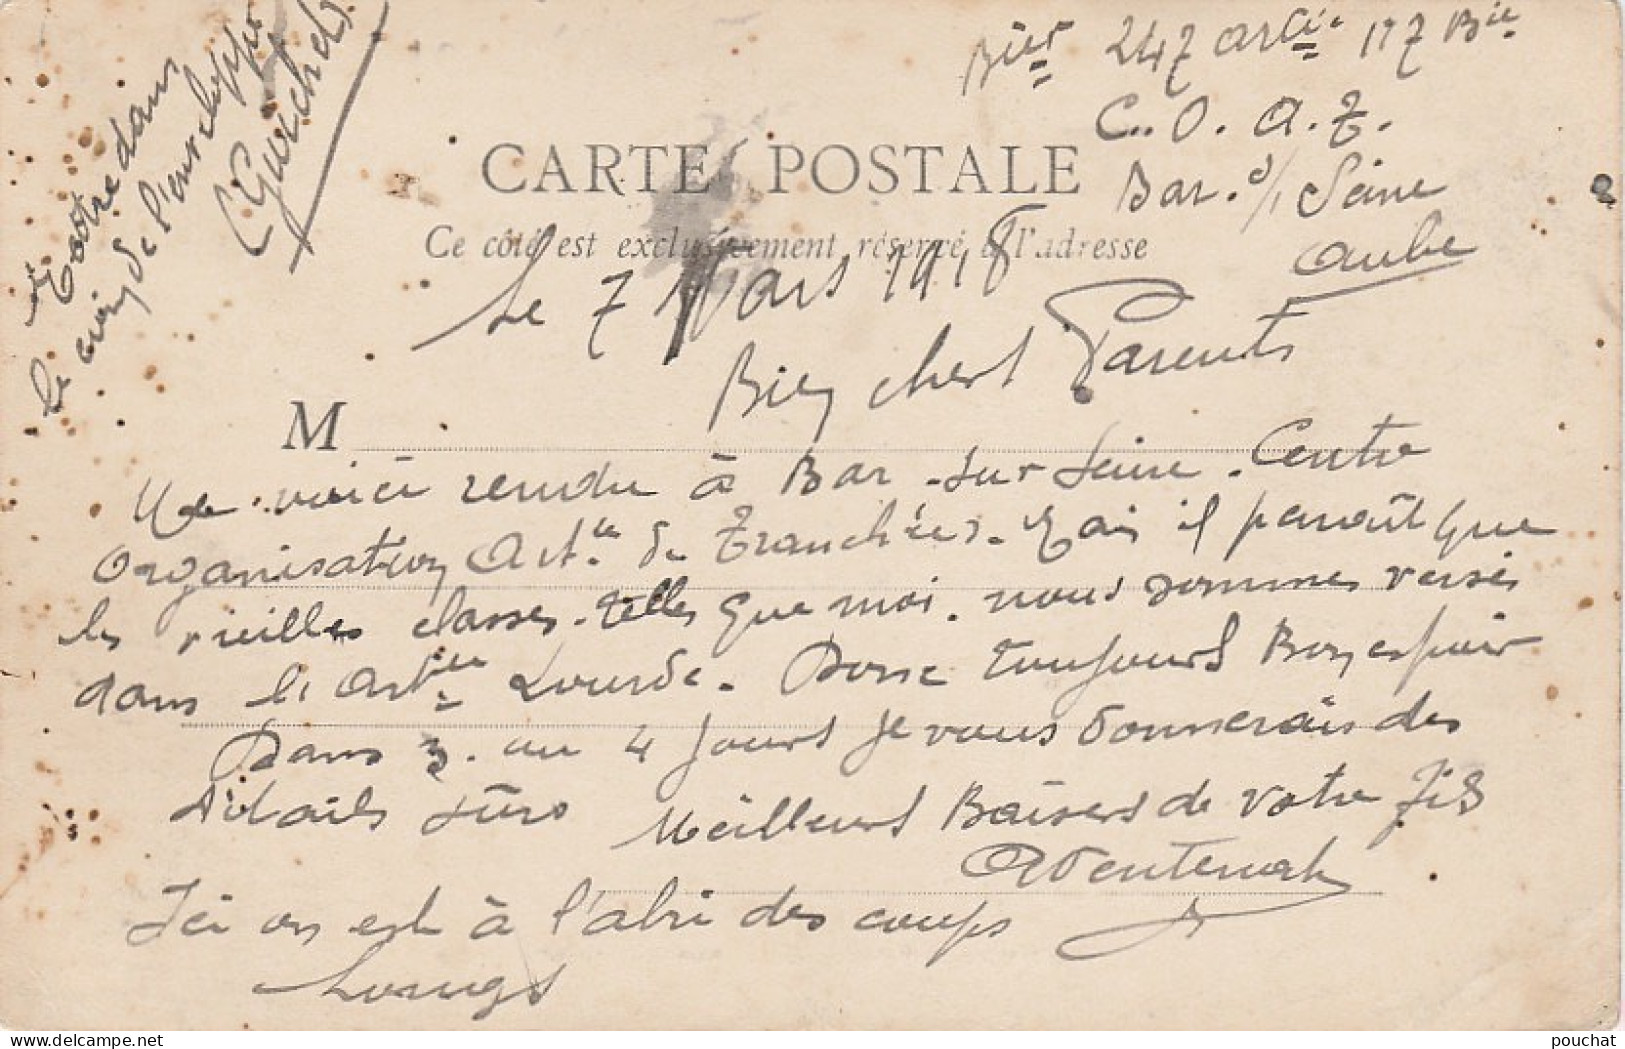 247 Artie 117 Bie
C.. O. A. T.
Bar. s/ Seine
Aube
CARTE POSTALE
Ce côté est exclusivement réservé à l'adresse
Le 7 Mars 1918
Bien chers Parents
M
Me voici rendu à Bar-sur Seine. Centre
Organisation Artie de Tranchées. Mais il paraît que
les vieilles classes. telles que moi. nous sommes versés
dans l'Artie Lourde. Donc toujours Bon espoir
Dans 3. ou 4 jours je vous donnerais des
détails sûrs Meilleurs Baisers de votre fils
Ici on est à l'abri des coups
Longs
dans
le coin de l'enveloppe
(Guichets)
pouchat